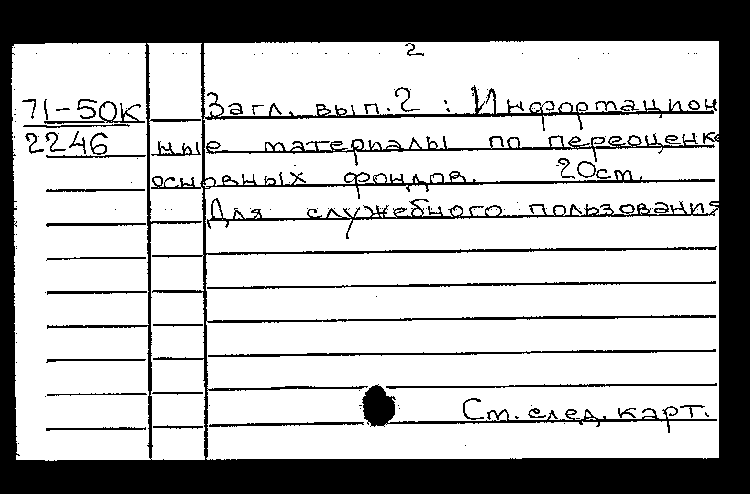 2
71-50К Загл. вып.2 : Информацион
2246 ные материалы по переоценке
основных фондов. 20 см.
Для служебного пользования
См. след. карт.